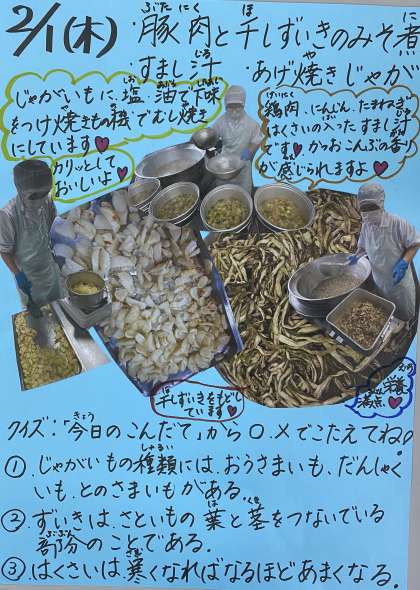 2/1(木)
・豚肉と干しずいきのみそ煮
・すまし汁 ・あげ焼きじゃが
じゃがいもに、塩、油で下味
をつけ焼きもの機でむし焼き
にしています♥
カリッとして
おいしいよ♥
鶏肉、にんじん、たまねぎ、
はくさいの入ったすまし汁
です♥かつおこんぶの香り
が感じられますよ♥
干しずいきをもどし
ています♥
栄養
満点♥
クイズ:「今日のこんだて」から○、×でこたえてね!
①、じゃがいもの種類には、おうさまいも、だんしゃく
いも、とのさまいもがある。
②ずいきは、さといもの葉と茎をつないでいる
部分のことである。
③はくさいは、寒くなればなるほどあまくなる。